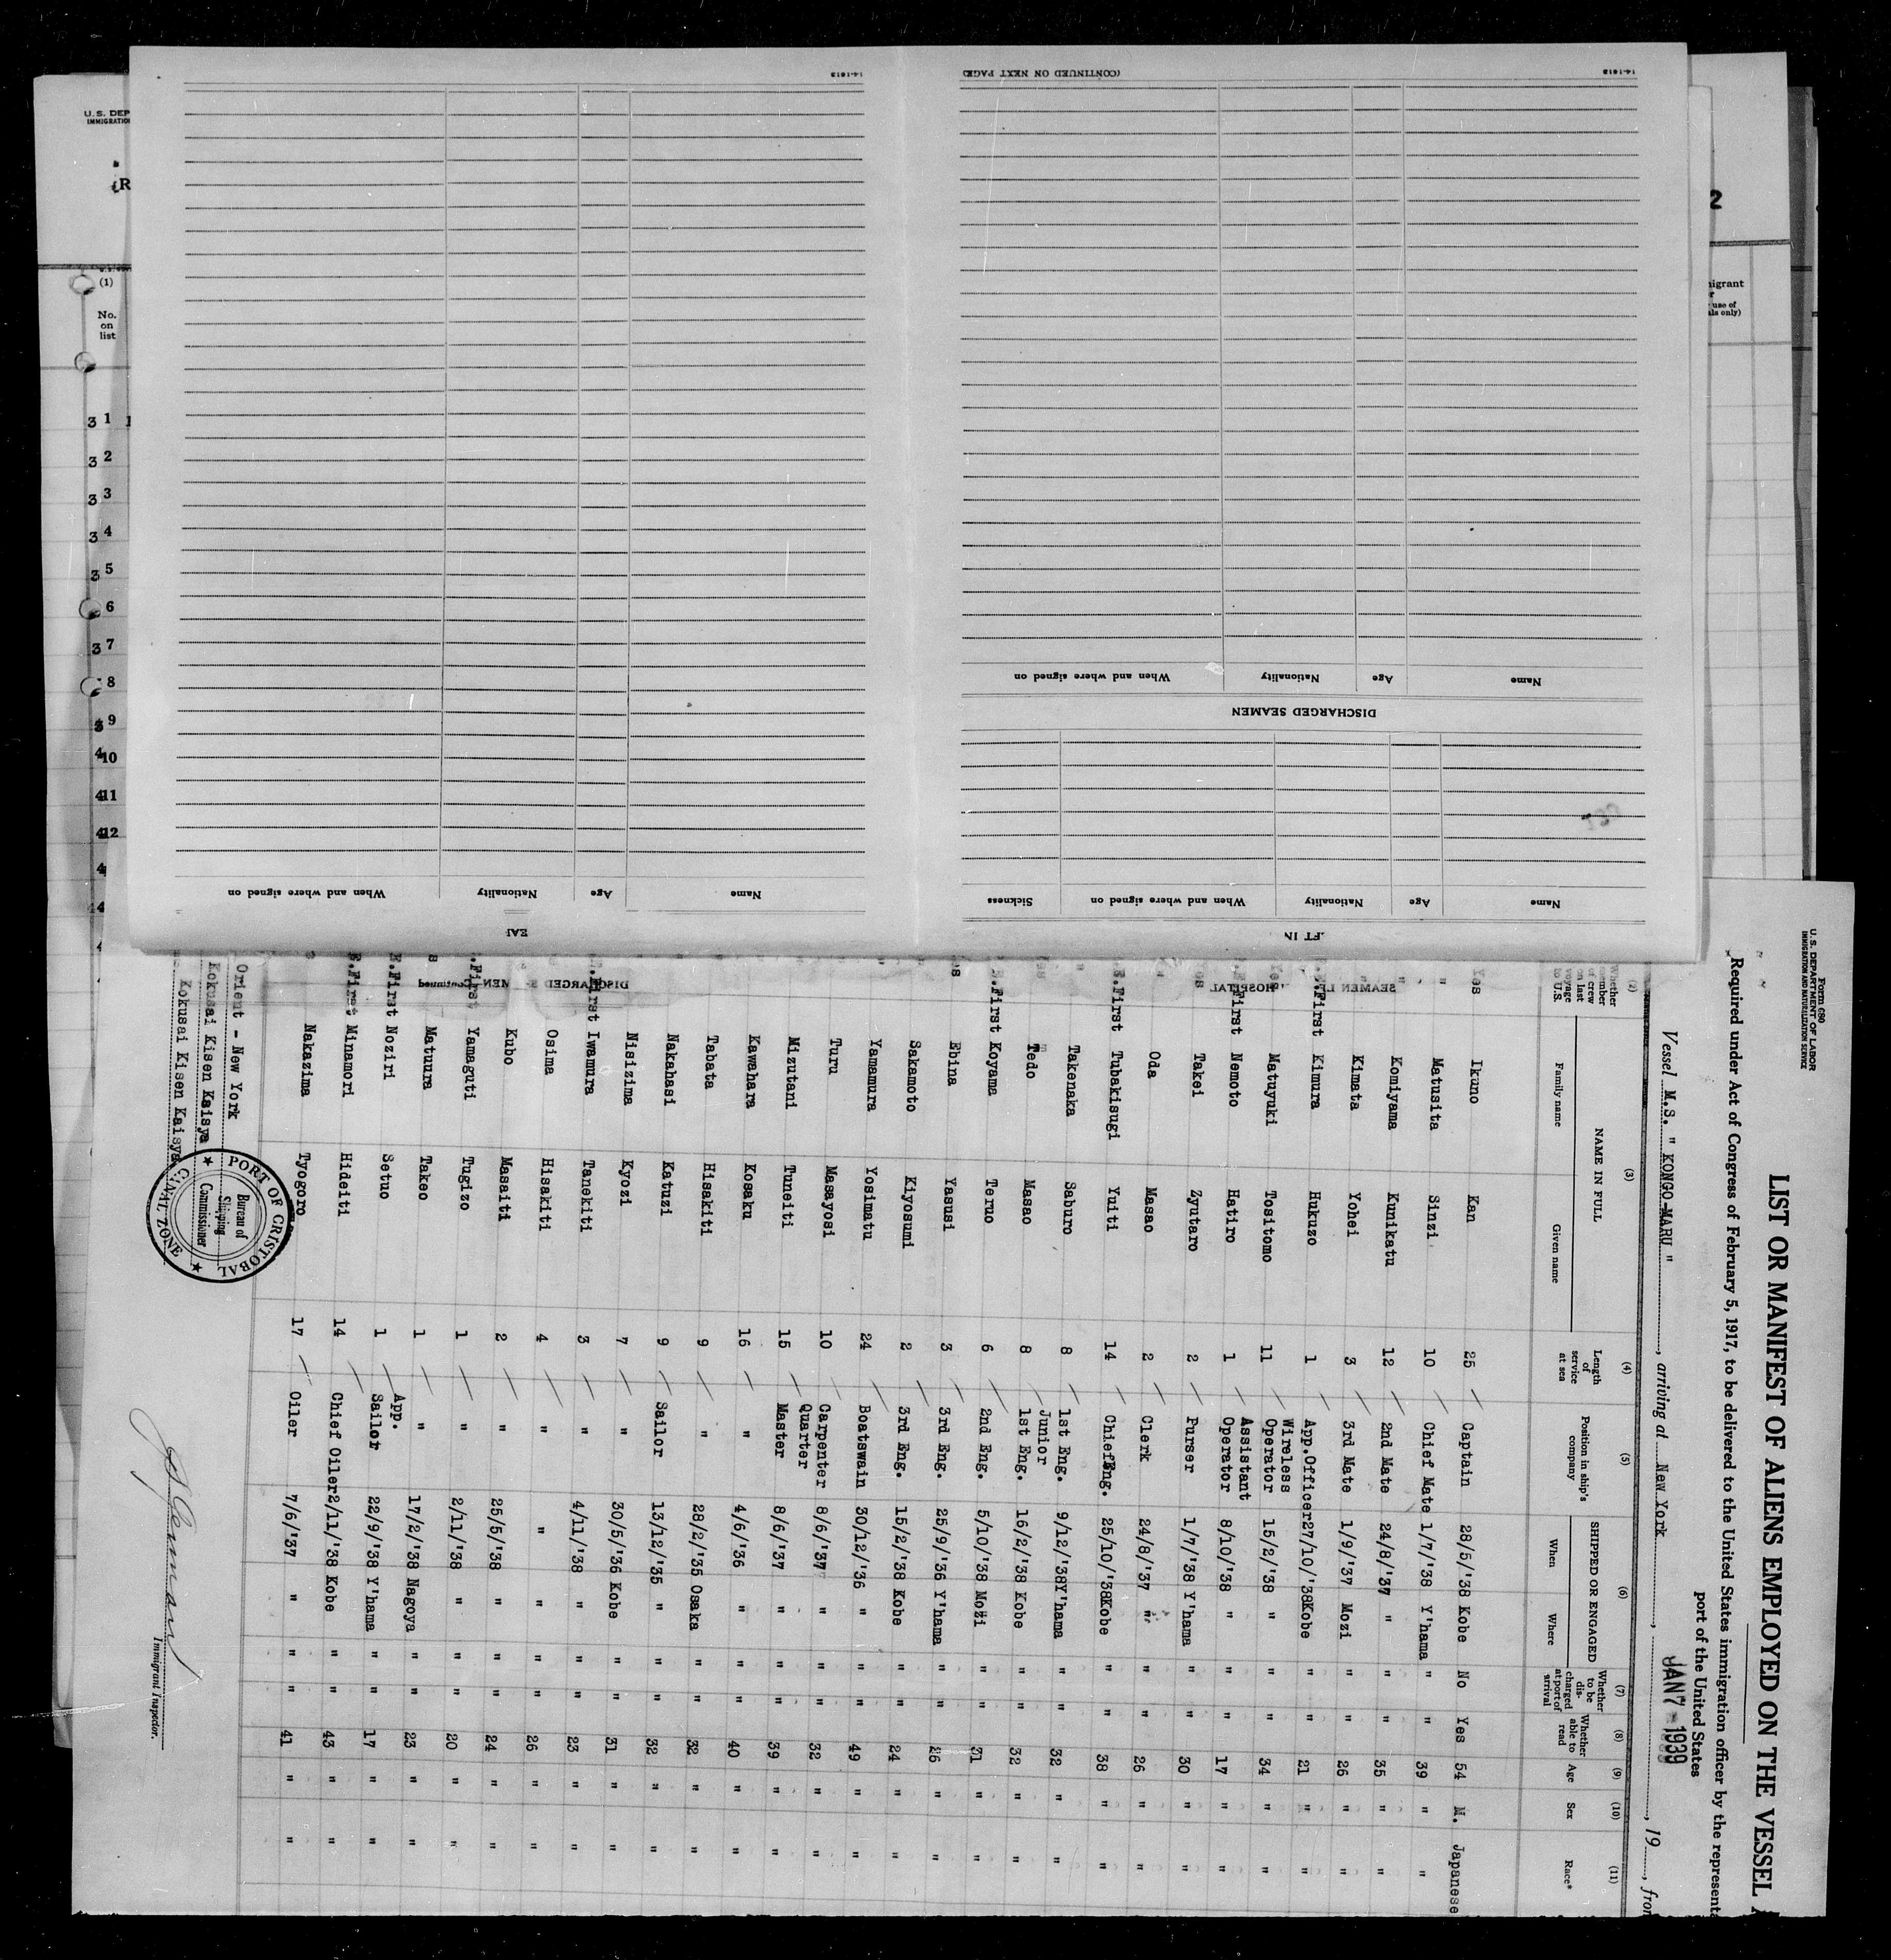 14-1613
(CONTINUED ON NEXT PAGE)
14-1613
Name Age Nationality When and where signed on
DISCHARGED SEAMEN
Name Age Nationality When and where signed on Sickness
Name Age Nationality When and where signed on
U.S. DEP
IMMIGRATIO
(R
(1)
No.
on
list
3 1
3 2
3 3
3 4
3 5
6
3 7
8
9
10
11
12
2
migrant
use of
als only)
Form 680
U. S. DEPARTMENT OF LABOR
IMMIGRATION AND NATURALIZATION SERVICE
LIST OR MANIFEST OF ALIENS EMPLOYED ON THE VESSEL
Required under Act of Congress of February 5, 1917, to be delivered to the United States immigration officer by the representa
port of the United States
Vessel M.S. " KONGO MARU ", arriving at New York, JAN 7 - 1939, 19, from
(2) (3) (4) (5) (6) (7) (8) (9) (10) (11)
Whether member of crew on last voyage to U.S. NAME IN FULL Length of service at sea Position in ship's company SHIPPED OR ENGAGED Whether to be discharged at port of arrival Whether able to read Age Sex Race*
Family name Given name When Where
Yes Ikuno Kan 25 Captain 28/5/'38 Kobe No Yes 54 M. Japanese
" Matusita Sinzi 10 Chief Mate 1/7/'38 Y'hama " " 39 " "
" Komiyama Kunikatu 12 2nd Mate 24/8/'37 " " " 35 " "
Kimata Yohei 3 3rd Mate 1/9/'37 Mozi " " 26 " "
.First Kimura Hukuzo 1 App.Officer 27/10/'38 Kobe " " 21 " "
Yes Matuyuki Tositomo 11 Wireless Operator 15/2/'38 " " " 34 " "
.First Nemoto Hatiro 1 Assistant Operator 8/10/'38 " " " 17 " "
es Takei Zyutaro 2 Purser 1/7/'38 Y'hama " " 30 " "
" Oda Masao 2 Clerk 24/8/'37 " " " 26 " "
E.First Tubakisugi Yuiti 14 Chief Eng. 25/10/'38 Kobe " " 38 " "
Takenaka Saburo 8 1st Eng. 9/12/'38 Y'hama " " 32 " "
es Tedo Masao 8 Junior 1st Eng. 16/2/'38 Kobe " " 32 " "
E.First Koyama Teruo 6 2nd Eng. 5/10/'38 Mozi " " 31 " "
es Ebina Yasusi 3 3rd Eng. 25/9/'36 Y'hama " " 26 " "
" Sakamoto Kiyosumi 2 3rd Eng. 15/2/'38 Kobe " " 24 " "
" Yamamura Yosimatu 24 Boatswain 30/12/'36 " " " 49 " "
Turu Masayosi 10 Carpenter 8/6/'37 " " " 32 " "
Mizutani Tuneiti 15 Quarter Master 8/6/'37 " " " 39 " "
Kawahara Kosaku 16 " 4/6/'36 " " " 40 " "
Tabata Hisakiti 9 " 28/2/'35 Osaka " " 32 " "
Nakahasi Katuzi 9 Sailor 13/12/'35 " " " 32 " "
Nisizima Kyozi 7 " 30/5/'36 Kobe " " 31 " "
.First Iwamura Tanekiti 3 " 4/11/'38 " " " 23 " "
Osima Hisakiti 4 " " " " " 26 " "
Kubo Masaiti 2 " 25/5/'38 " " " 24 " "
.First Yamaguti Tugizo 1 " 2/11/'38 " " " 20 " "
s Matuura Takeo 1 " 17/2/'38 Nagoya " " 23 " "
E.First Noziri Setuo 1 App. Sailor 22/9/'38 Y'hama " " 17 " "
E.First Minamori Hideiti 14 Chief Oiler 2/11/'38 Kobe " " 43 " "
s Nakazima Tyogoro 17 Oiler 7/6/'37 " " " 41 " "
Orient - New York
Kokusai Kisen Kaisya
Kokusai Kisen Kaisya
PORT OF CRISTOBAL
CANAL ZONE
Bureau of
Shipping
Commissioner
Immigrant Inspector.